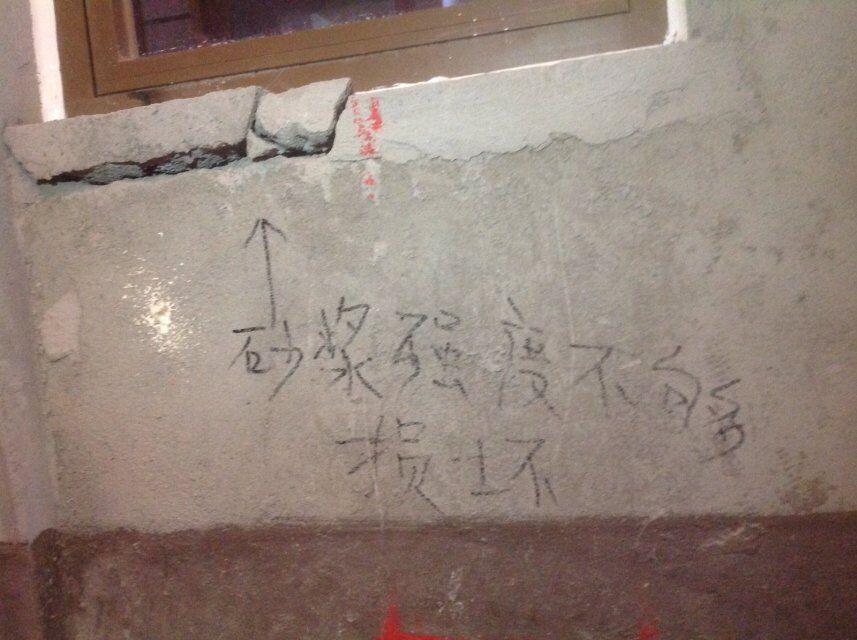 砂浆强度不够
损坏